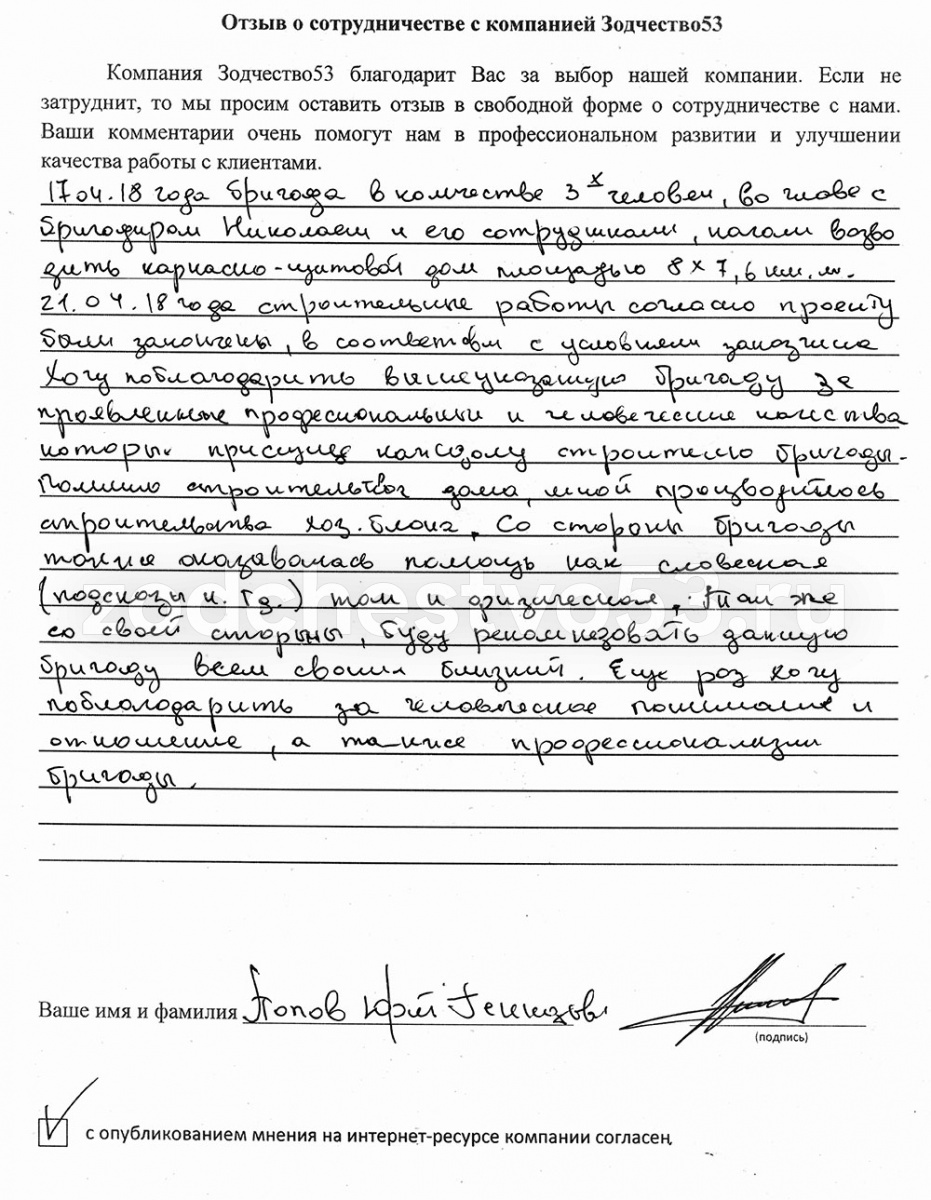 Отзыв о сотрудничестве с компанией Зодчество53
Компания Зодчество53 благодарит Вас за выбор нашей компании. Если не
затруднит, то мы просим оставить отзыв в свободной форме о сотрудничестве с нами.
Ваши комментарии очень помогут нам в профессиональном развитии и улучшении
качества работы с клиентами.
17.04.18 года бригада в количестве 3х человек, во главе с
бригадиром Николаем и его сотрудниками, начали возво
дить каркасно-щитовой дом площадью 8х7,6 кв.м.
21.04.18 года строительные работы согласно проекту
были закончены, в соответвии с условиями заказчика
Хочу поблагодарить вышеуказанную бригаду за
проявленные професиональные и человеческие качества
которые присущие каждому строителю бригады.
Помимо строительства дома, мной производилось
строительства хоз.блока. Со стороны бригады
также оказывалась помощь как словесная
(подсказы и.тд.) так и физическая. Также
со своей стороны, буду рекомндовать данную
бригаду всем своим близким. Еще раз хочу
поблагодарить за человеческое понимание и
отношение, а также профессионализм
бригады.
Ваше имя и фамилия Попов Юрий
(подпись)
с опубликованием мнения на интернет-ресурсе компании согласен
zodchestvo53.ru